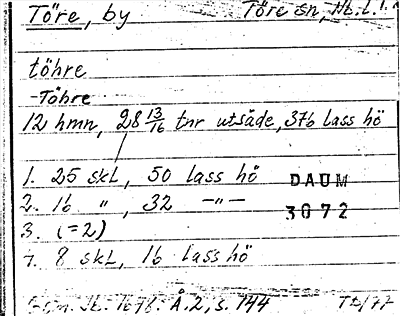 Töre, by Töre sn, Nb. l.
töhre
-Töhre
12 hmn, 28 13/16 tnr utsäde, 376 lass hö
1. 25 skl, 50 lass hö DAUM
2. 16 " , 32 -"- 3072
3. (=2)
4. 8 skl, 16 lass hö
Jb. 1678. Å.2, s. 144